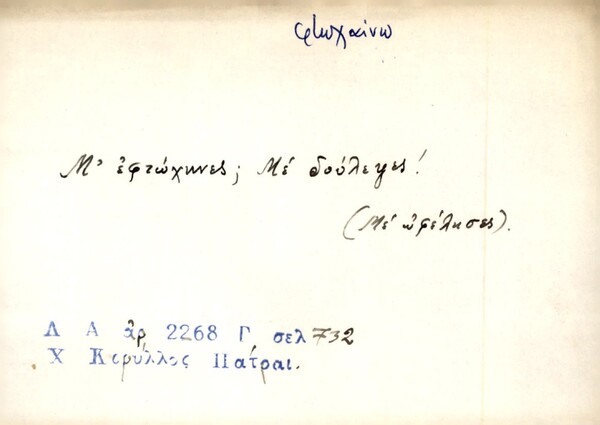 φτωχαίνω
Μ' ἐφτώχηνες; Μέ δούλεψες!
(Μέ ὠφέλησες).
Λ Α ἀρ 2268 Γ σελ 732
Χ Κορύλλος Πάτραι.